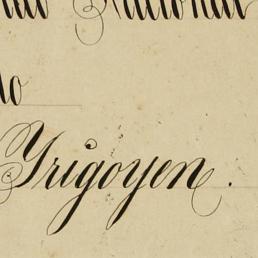 Nacional
lo
Yrigoyen.